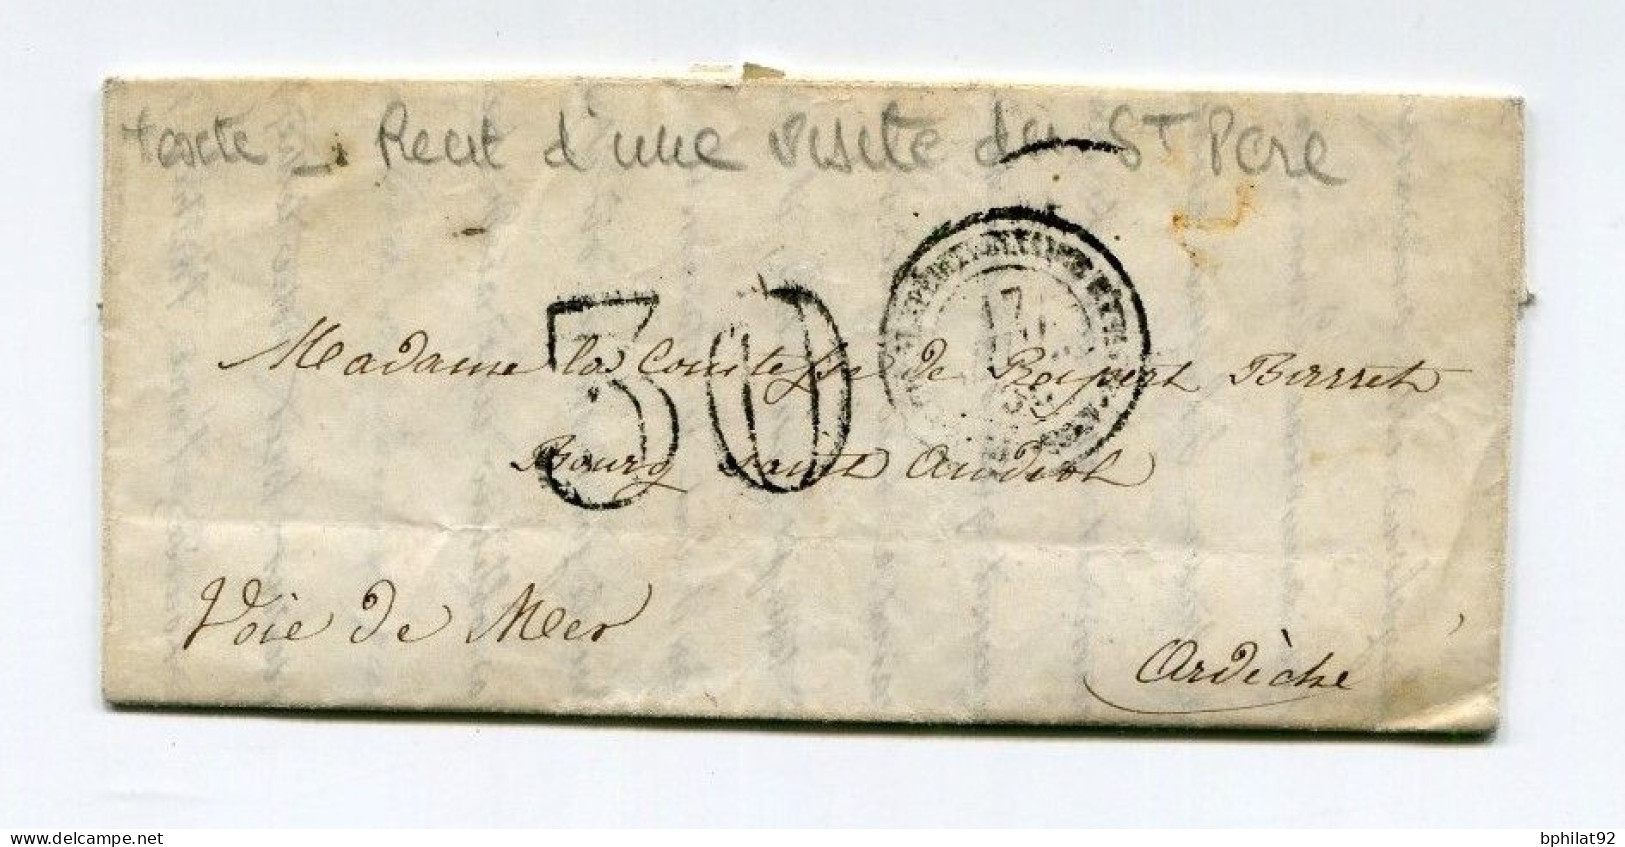 texte - Recit d'une visite du St Pere
30
17
Madame la Comtesse de Barret
Bourg saint andiol
Voie de Mer
Ardèche
www.delcampe.net
bphilat92